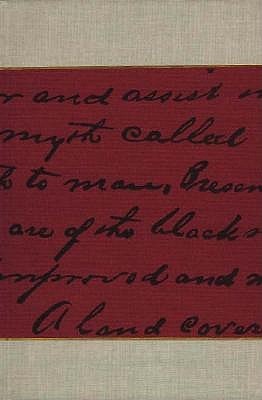 r and assist
myth called
to man, Presen
are of the blacks
improved and
A land cover